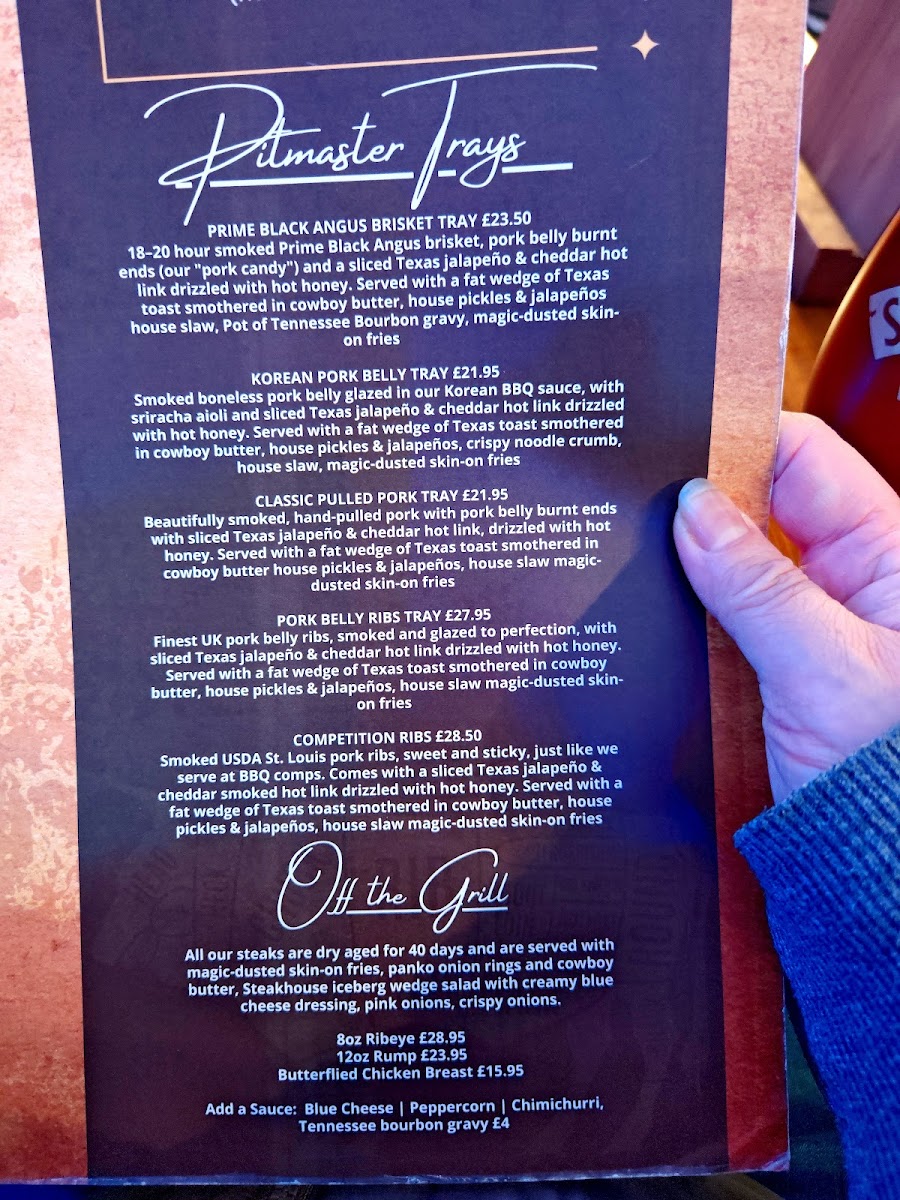 Pitmaster Trays
PRIME BLACK ANGUS BRISKET TRAY £23.50
18–20 hour smoked Prime Black Angus brisket, pork belly burnt
ends (our "pork candy") and a sliced Texas jalapeño & cheddar hot
link drizzled with hot honey. Served with a fat wedge of Texas
toast smothered in cowboy butter, house pickles & jalapeños
house slaw, Pot of Tennessee Bourbon gravy, magic-dusted skin-
on fries
KOREAN PORK BELLY TRAY £21.95
Smoked boneless pork belly glazed in our Korean BBQ sauce, with
sriracha aioli and sliced Texas jalapeño & cheddar hot link drizzled
with hot honey. Served with a fat wedge of Texas toast smothered
in cowboy butter, house pickles & jalapeños, crispy noodle crumb,
house slaw, magic-dusted skin-on fries
CLASSIC PULLED PORK TRAY £21.95
Beautifully smoked, hand-pulled pork with pork belly burnt ends
with sliced Texas jalapeño & cheddar hot link, drizzled with hot
honey. Served with a fat wedge of Texas toast smothered in
cowboy butter house pickles & jalapeños, house slaw magic-
dusted skin-on fries
PORK BELLY RIBS TRAY £27.95
Finest UK pork belly ribs, smoked and glazed to perfection, with
sliced Texas jalapeño & cheddar hot link drizzled with hot honey.
Served with a fat wedge of Texas toast smothered in cowboy
butter, house pickles & jalapeños, house slaw magic-dusted skin-
on fries
COMPETITION RIBS £28.50
Smoked USDA St. Louis pork ribs, sweet and sticky, just like we
serve at BBQ comps. Comes with a sliced Texas jalapeño &
cheddar smoked hot link drizzled with hot honey. Served with a
fat wedge of Texas toast smothered in cowboy butter, house
pickles & jalapeños, house slaw magic-dusted skin-on fries
Off the Grill
All our steaks are dry aged for 40 days and are served with
magic-dusted skin-on fries, panko onion rings and cowboy
butter, Steakhouse iceberg wedge salad with creamy blue
cheese dressing, pink onions, crispy onions.
8oz Ribeye £28.95
12oz Rump £23.95
Butterflied Chicken Breast £15.95
Add a Sauce: Blue Cheese | Peppercorn | Chimichurri,
Tennessee bourbon gravy £4